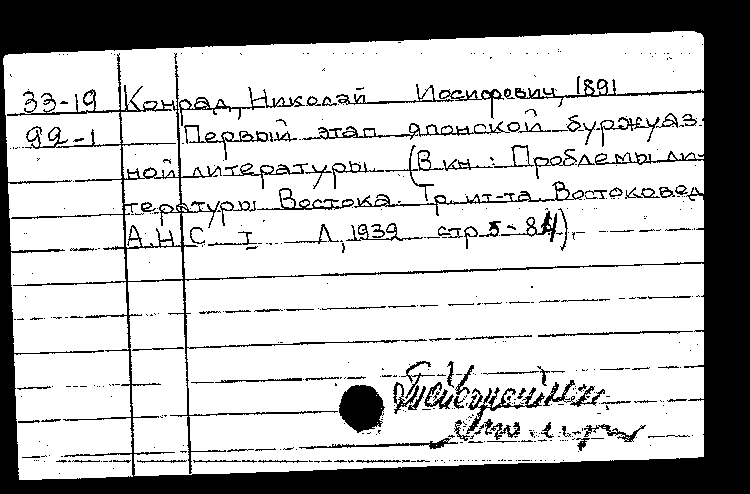 33-19 Конрад, Николай Иосифович, 1891
99-1 Первый этап японской буржуаз-
ной литературы. (В кн.: Проблемы ли-
тературы Востока. Тр. ит-та Востоковед
А.Н.С. I Л, 1932 стр 5-84).